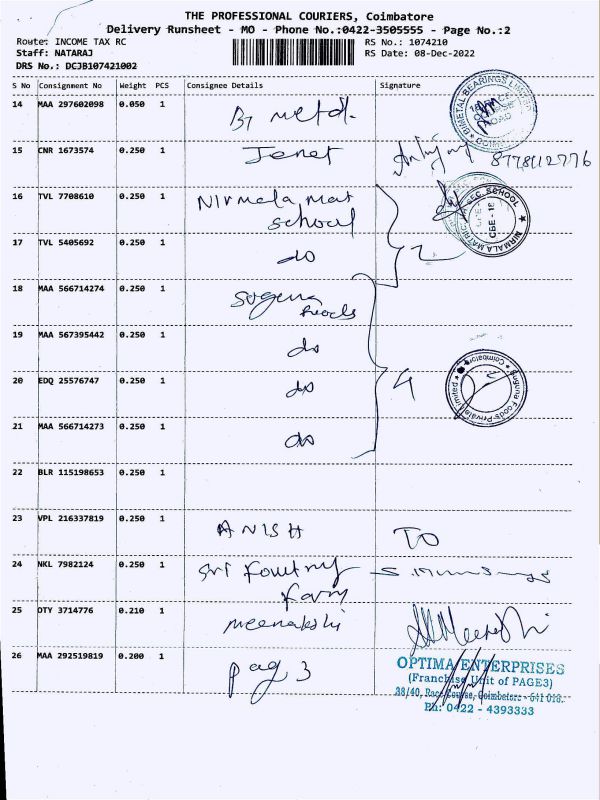 THE PROFESSIONAL COURIERS, Coimbatore
Delivery Runsheet - MO - Phone No.:0422-3505555 - Page No.:2
Route: INCOME TAX RC RS No.: 1074210
Staff: NATARAJ RS Date: 08-Dec-2022
DRS No.: DCJB107421002
S No Consignment No Weight PCS Consignee Details Signature
14 MAA 297602098 0.050 1 Bi metal. BIMETAL BEARINGS LIMITED
15 CNR 1673574 0.250 1 Jenet 8778112776
16 TVL 7708610 0.250 1 Nirmala mat
school NIRMALA MATRIC HR SEC. SCHOOL CBE - 18
17 TVL 5405692 0.250 1 do 2
18 MAA 566714274 0.250 1 Suguna
foods
19 MAA 567395442 0.250 1 do
20 EDQ 25576747 0.250 1 do 4 Suguna Foods Private Limited Coimbatore
21 MAA 566714273 0.250 1 do
22 BLR 115198653 0.250 1
23 VPL 216337819 0.250 1 ANISH TO
24 NKL 7982124 0.250 1 Sri Poultry
Farm
25 OTY 3714776 0.210 1 meenakshi
26 MAA 292519819 0.200 1 pag 3 OPTIMA ENTERPRISES
(Franchise Unit of PAGE3)
38/40, Race Course, Coimbatore - 641 018.
Ph: 0422 - 4393333